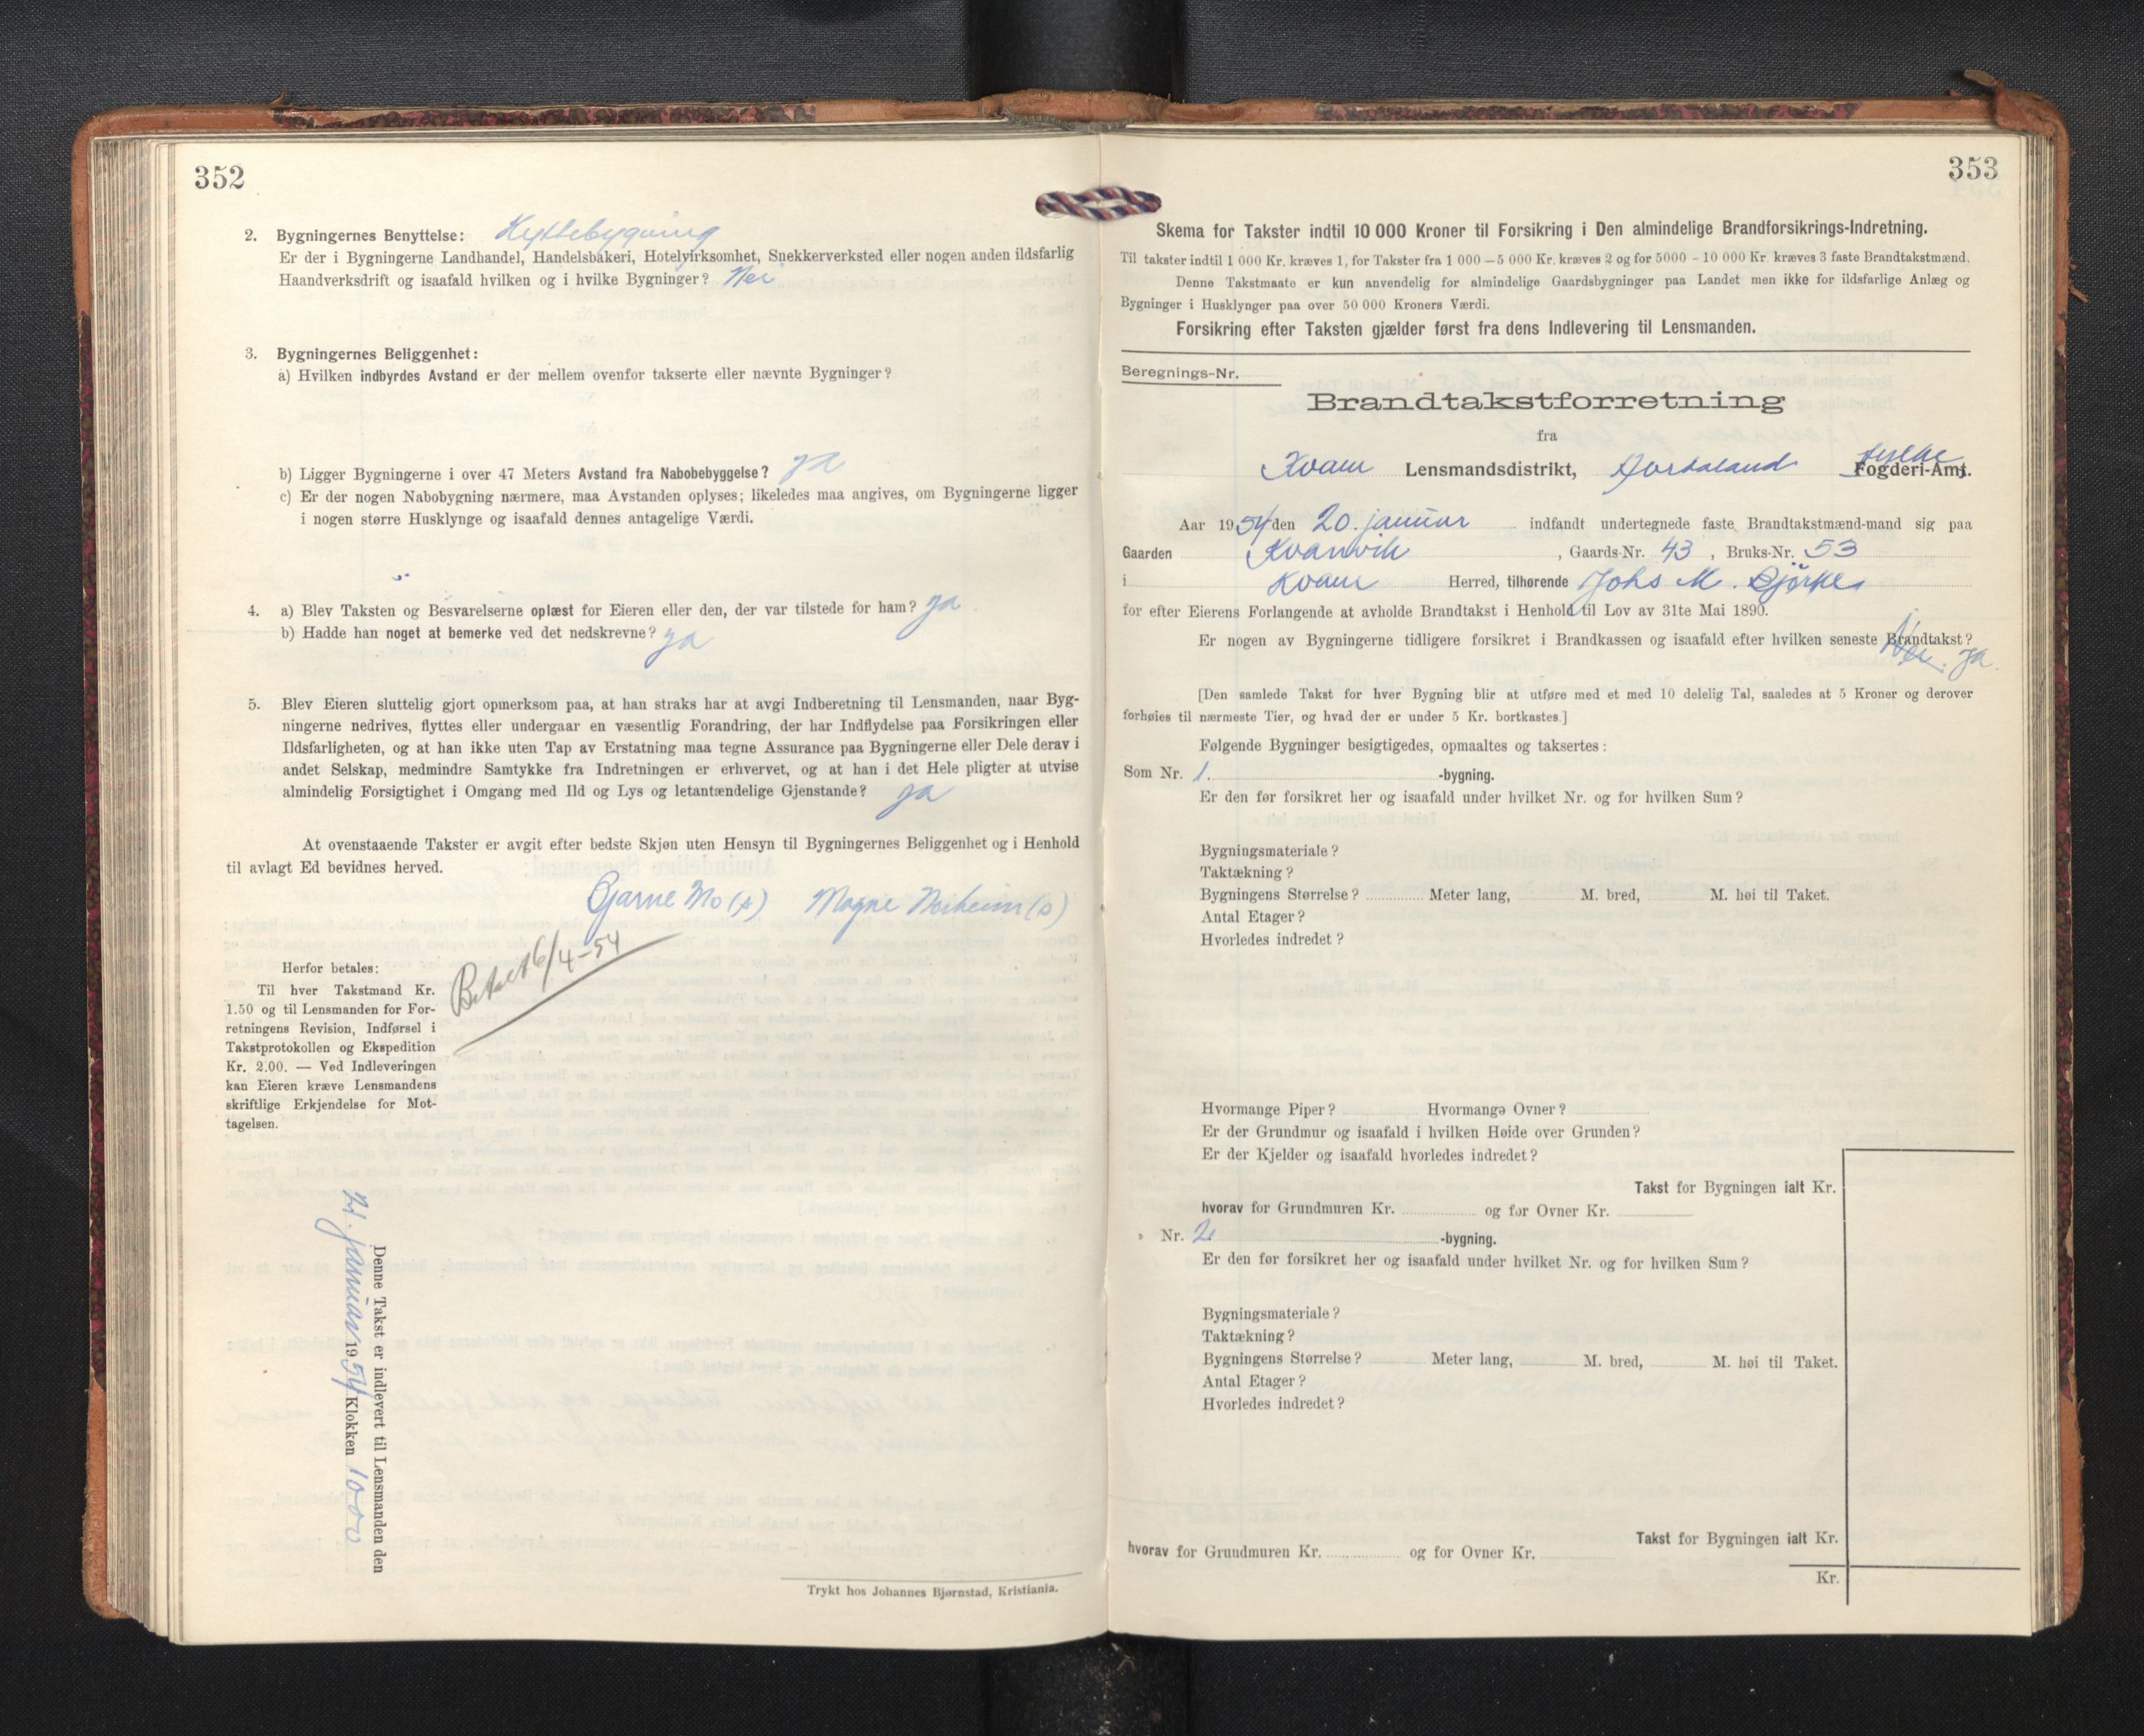 352
2. Bygningernes Benyttelse: Hyttebygning
Er der i Bygningerne Landhandel, Handelsbakeri, Hotelvirksomhet, Snekkerverksted eller nogen anden ildsfarlig
Haandverksdrift og isaafald hvilken og i hvilke Bygninger? Nei
3. Bygningernes Beliggenhet:
a) Hvilken indbyrdes Avstand er der mellem ovenfor takserte eller nævnte Bygninger?
b) Ligger Bygningerne i over 47 Meters Avstand fra Nabobebyggelse? ja
c) Er der nogen Nabobygning nærmere, maa Avstanden oplyses; likeledes maa angives, om Bygningerne ligger
i nogen større Husklynge og isaafald dennes antagelige Værdi.
4. a) Blev Taksten og Besvarelserne oplæst for Eieren eller den, der var tilstede for ham? ja
b) Hadde han noget at bemerke ved det nedskrevne? ja
5. Blev Eieren sluttelig gjort opmerksom paa, at han straks har at avgi Indberetning til Lensmanden, naar Byg-
ningerne nedrives, flyttes eller undergaar en væsentlig Forandring, der har Indflydelse paa Forsikringen eller
Ildsfarligheten, og at han ikke uten Tap av Erstatning maa tegne Assurance paa Bygningerne eller Dele derav i
andet Selskap, medmindre Samtykke fra Indretningen er erhvervet, og at han i det Hele pligter at utvise
almindelig Forsigtighet i Omgang med Ild og Lys og letantændelige Gjenstande? ja
At ovenstaaende Takster er avgit efter bedste Skjøn uten Hensyn til Bygningernes Beliggenhet og i Henhold
til avlagt Ed bevidnes herved.
Bjarne Mo (s) Magne Norheim (s)
Betalt 6/4-54
Herfor betales:
Til hver Takstmand Kr.
1.50 og til Lensmanden for For-
retningens Revision, Indførsel i
Takstprotokollen og Ekspedition
Kr. 2.00. — Ved Indleveringen
kan Eieren kræve Lensmandens
skriftlige Erkjendelse for Mot-
tagelsen.
Denne Takst er indlevert til Lensmanden den
21. januar 1954 Klokken 1000
Trykt hos Johannes Bjørnstad, Kristiania.
353
Skema for Takster indtil 10 000 Kroner til Forsikring i Den almindelige Brandforsikrings-Indretning.
Til takster indtil 1 000 Kr. kræves 1, for Takster fra 1 000 – 5 000 Kr. kræves 2 og for 5000 – 10 000 Kr. kræves 3 faste Brandtakstmænd.
Denne Takstmaate er kun anvendelig for almindelige Gaardsbygninger paa Landet men ikke for ildsfarlige Anlæg og
Bygninger i Husklynger paa over 50 000 Kroners Værdi.
Forsikring efter Taksten gjælder først fra dens Indlevering til Lensmanden.
Beregnings-Nr.
Brandtakstforretning
fra
Kvam Lensmandsdistrikt, Hordaland fylke Fogderi-Amt.
Aar 1954 den 20. januar indfandt undertegnede faste Brandtakstmænd-mand sig paa
Gaarden Kvanvik, Gaards-Nr. 43, Bruks-Nr. 53
i Kvam Herred, tilhørende Johs M. Björke
for efter Eierens Forlangende at avholde Brandtakst i Henhold til Lov av 31te Mai 1890.
Er nogen av Bygningerne tidligere forsikret i Brandkassen og isaafald efter hvilken seneste Brandtakst?
Nei. Ja.
[Den samlede Takst for hver Bygning blir at utføre med et med 10 delelig Tal, saaledes at 5 Kroner og derover
forhøies til nærmeste Tier, og hvad der er under 5 Kr. bortkastes.]
Følgende Bygninger besigtigedes, opmaaltes og taksertes:
Som Nr. 1. -bygning.
Er den før forsikret her og isaafald under hvilket Nr. og for hvilken Sum?
Bygningsmateriale?
Taktækning?
Bygningens Størrelse? Meter lang, M. bred, M. høi til Taket.
Antal Etager?
Hvorledes indredet?
Hvormange Piper? Hvormange Ovner?
Er der Grundmur og isaafald i hvilken Høide over Grunden?
Er der Kjelder og isaafald hvorledes indredet?
Takst for Bygningen ialt Kr.
hvorav for Grundmuren Kr. og for Ovner Kr.
" Nr. 2. -bygning.
Er den før forsikret her og isaafald under hvilket Nr. og for hvilken Sum?
Bygningsmateriale?
Taktækning?
Bygningens Størrelse? Meter lang, M. bred, M. høi til Taket.
Antal Etager?
Hvorledes indredet?
Takst for Bygningen ialt Kr.
hvorav for Grundmuren Kr. og for Ovner Kr.
Kr.